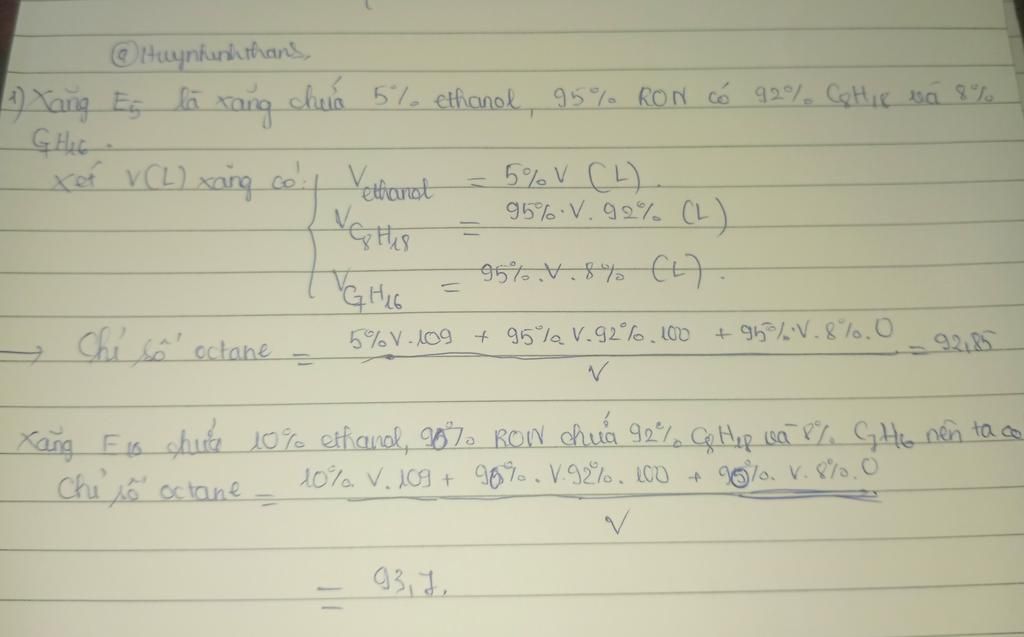 @Huynhnhthans,
1) Xăng E5 là xăng chứa 5% ethanol, 95% RON có 92% C8H18 và 8%
C7H16.
Xét V(L) xăng có: V ethanol = 5%V (L).
V C8H18 = 95%.V.92% (L)
V C7H16 = 95%.V.8% (L).
→ Chỉ số octane = (5%V.109 + 95%V.92%.100 + 95%.V.8%.0) / V = 92,85
Xăng E10 chứa 10% ethanol, 90% RON chứa 92% C8H18 và 8% C7H16 nên ta có
Chỉ số octane = (10%.V.109 + 90%.V.92%.100 + 90%.V.8%.0) / V
= 93,7.